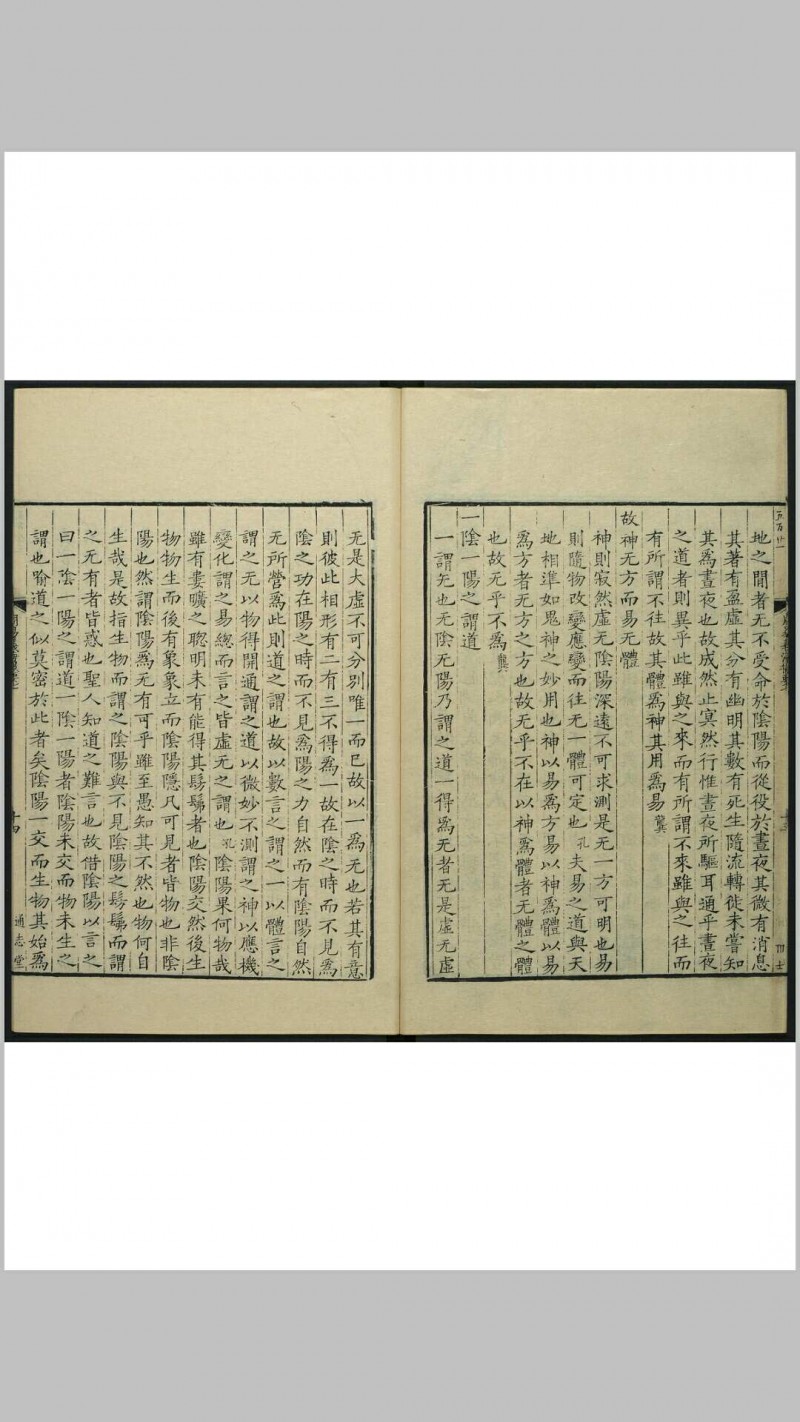 地之間者无不受命於陰陽而從役於晝夜其微有消息
其著有盈虛其分有幽明其數有死生隨流轉徙未嘗知
其爲晝夜也故成然止寞然行惟晝夜所驅耳通乎晝夜
之道者則異乎此雖與之來而有所謂不來雖與之往而
有所謂不往故其體爲神其用爲易 龔
故神无方而易无體
神則寂然虛无陰陽深遠不可求測是无一方可明也易
則隨物改變應變而往无一體可定也 孔 夫易之道與天
地相準如鬼神之妙用也神以易爲方易以神爲體以易
爲方者无方之方也故无乎不在以神爲體者无體之體
也故无乎不爲 龔
一陰一陽之謂道
一謂无也无陰无陽乃謂之道一得爲无者无是虛无虛
无是大虛不可分別唯一而已故以一爲无也若其有意
則彼此相形有二有三不得爲一故在陰之時而不見爲
陰之功在陽之時而不見爲陽之力自然而有陰陽自然
无所營爲此則道之謂也故以數言之謂之一以體言之
謂之无以物得開通謂之道以微妙不測謂之神以應機
變化謂之易緫而言之皆虛无之謂也 孔 陰陽果何物哉
雖有婁曠之聦明未有能得其髣髴者也陰陽交然後生
物物生而後有象象立而陰陽隱凡可見者皆物也非陰
陽也然謂陰陽爲无有可乎雖至愚知其不然也物何自
生哉是故指生物而謂之陰陽與不見陰陽之髣髴而謂
之无有者皆惑也聖人知道之難言也故借陰陽以言之
曰一陰一陽之謂道一陰一陽者陰陽未交而物未生之
謂也喻道之似莫密於此者矣陰陽一交而生物其始爲
十四
通志堂